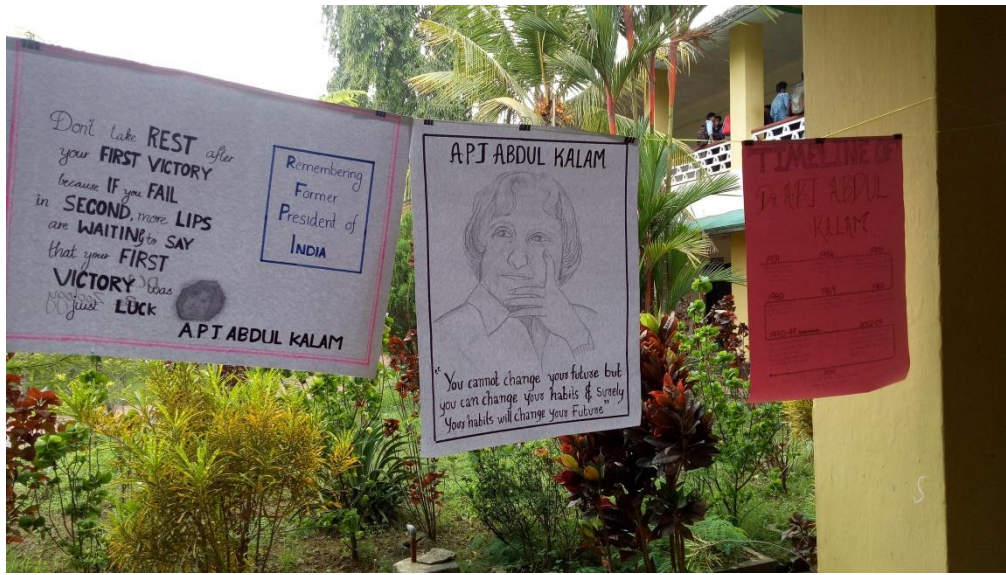 Don't take REST after
your FIRST VICTORY
because IF you FAIL
in SECOND, more LIPS
are WAITING to SAY
that your FIRST
VICTORY was
just LUCK
APJ ABDUL KALAM
Remembering
Former
President of
INDIA
APJ ABDUL KALAM
"You cannot change your future but
you can change your habits & surely
Your habits will change your Future"
TIMELINE OF
Dr APJ ABDUL
KALAM
1931
1960 1969
S